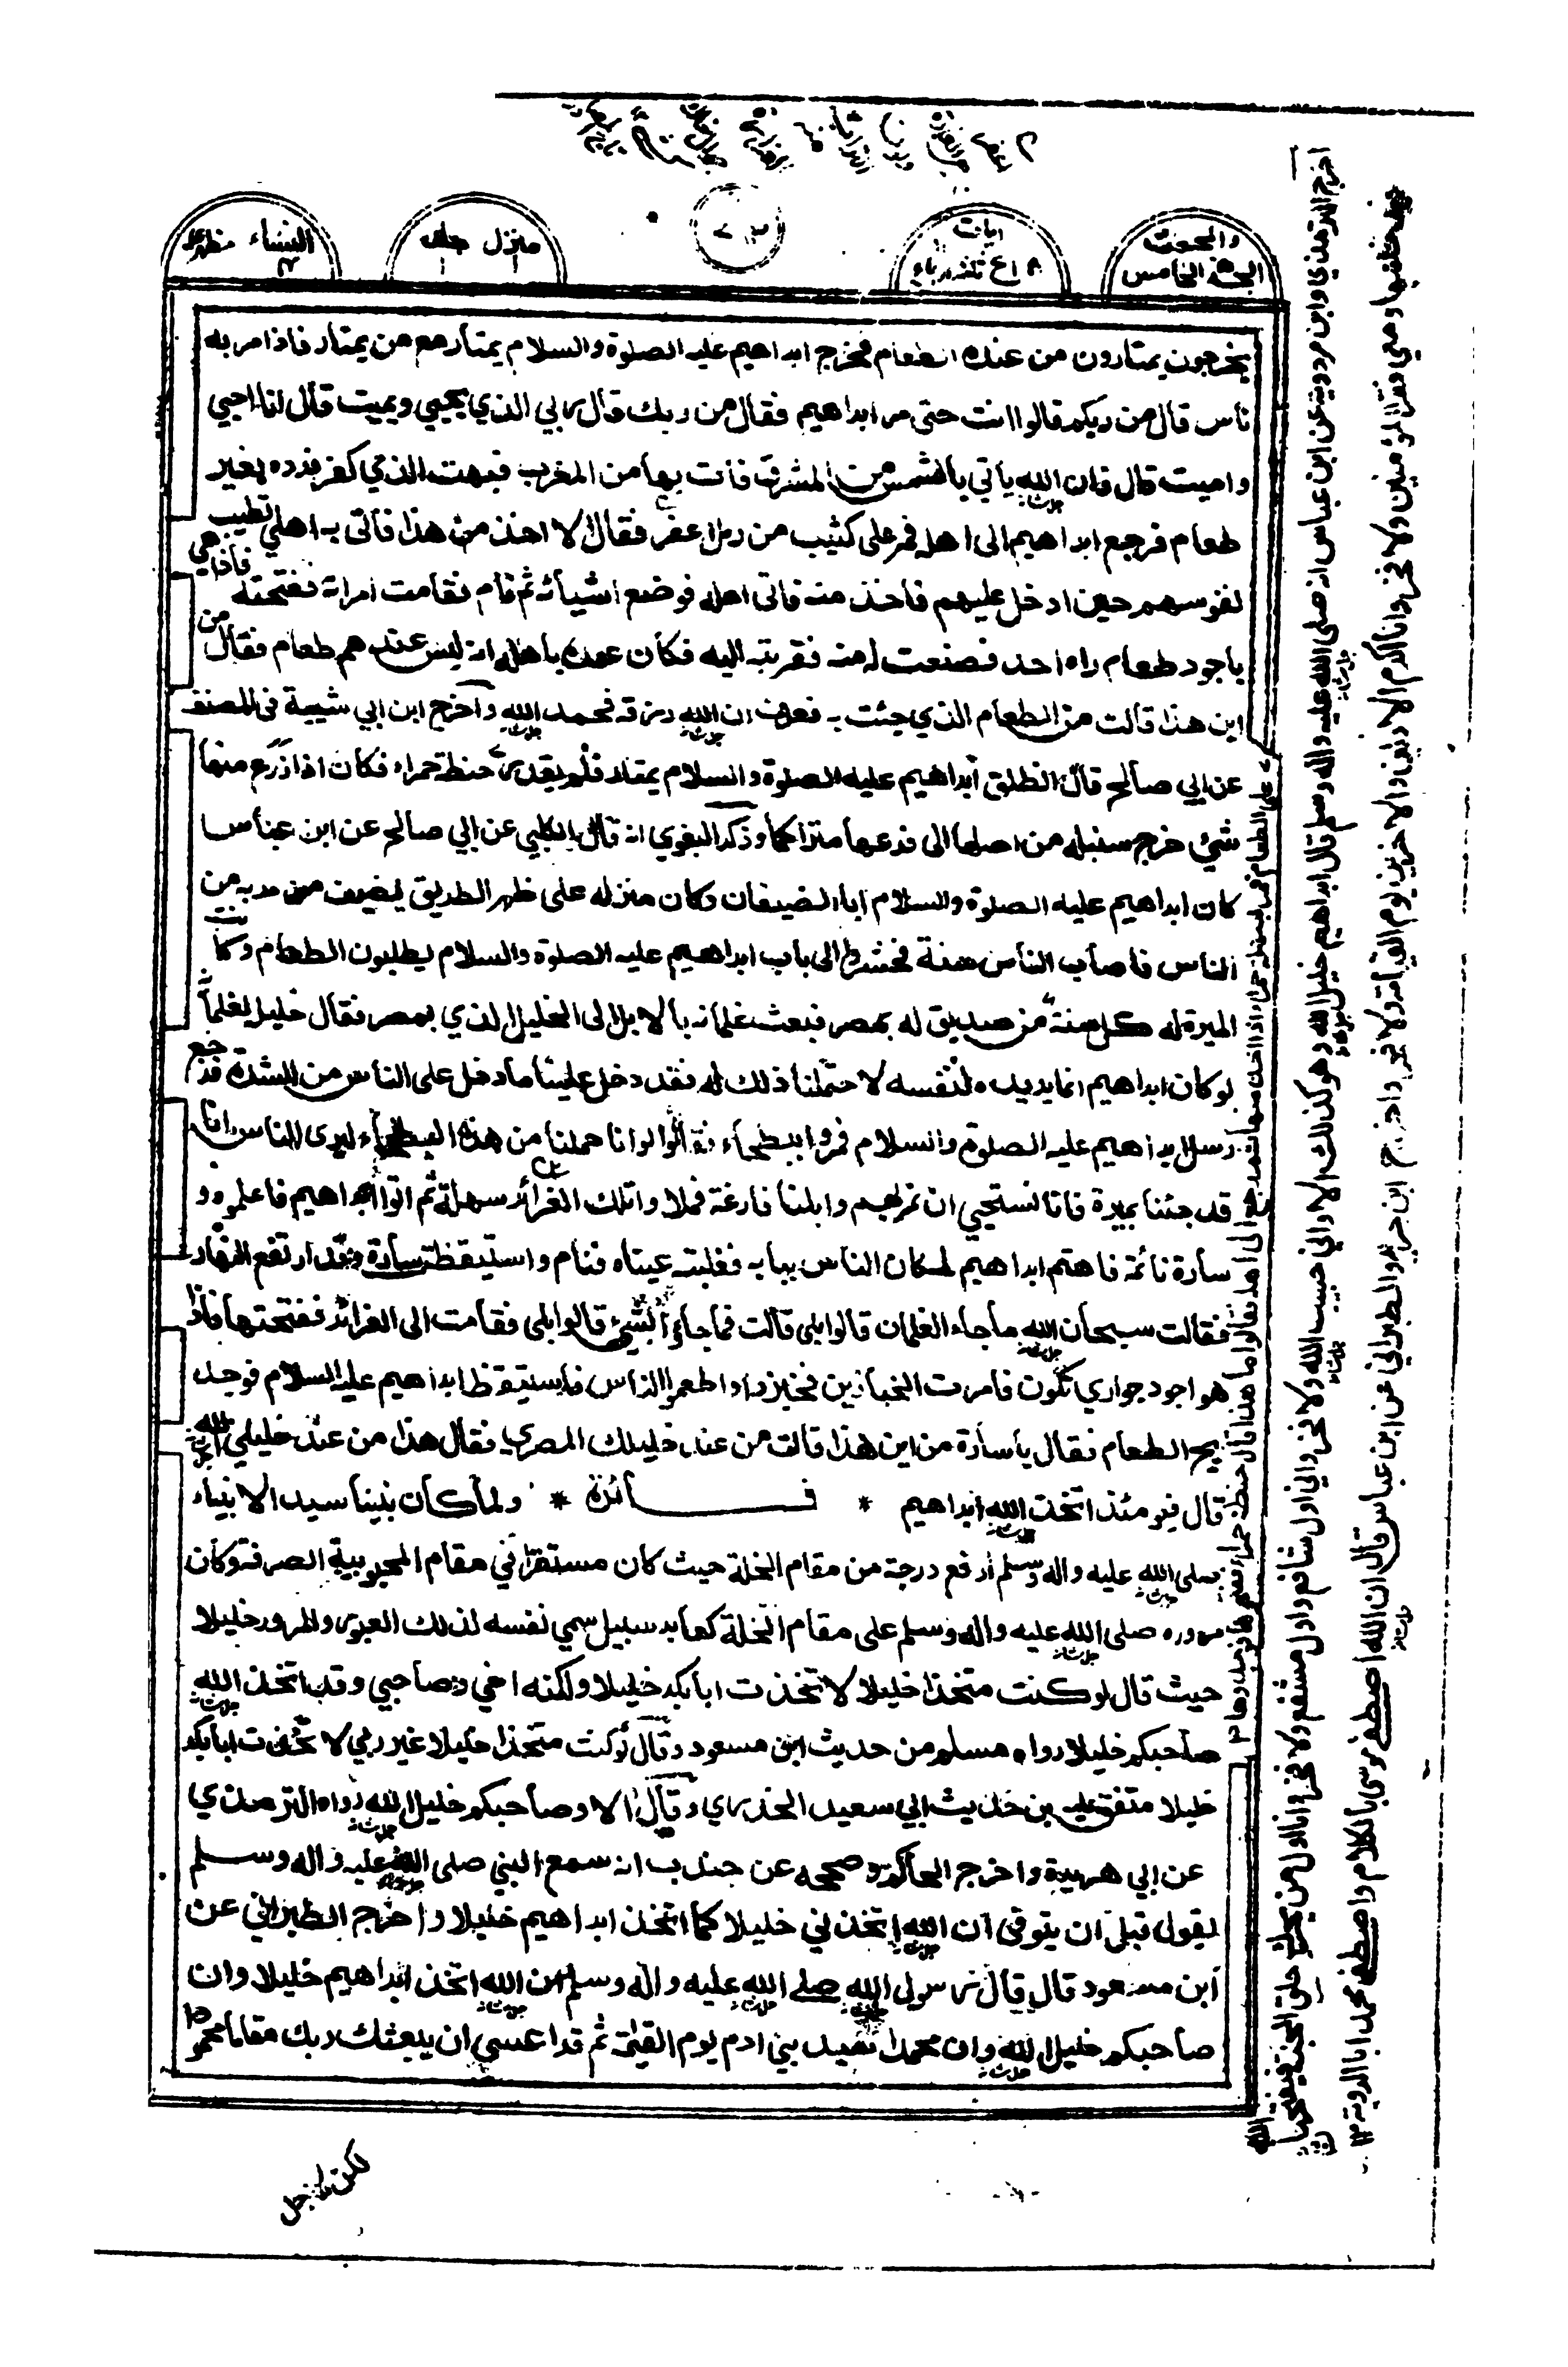 والمحصنت
الجزء الخامس
منزل
النساء
يخرجون يمتارون من عنده الطعام فخرج ابراهيم عليه الصلوة والسلام يمتار مع من يمتار فاذا مر به
ناس قال من ربكم قالوا انت حتى مر ابراهيم فقال من ربك قال ربي الذي يحيي ويميت قال انا احيي
واميت قال فان الله يأتي بالشمس من المشرق فأت بها من المغرب فبهت الذي كفر فرده بغير
طعام فرجع ابراهيم الى اهله فمر على كثيب من رمل اعفر فقال الا اخذ من هذا فأتى به اهلي تطيب
نفوسهم حين ادخل عليهم فاخذ منه فاتى اهله فوضع اشيائه ثم نام فقامت امراته ففتحته فاذا هي
باجود طعام راه احد فصنعت له منه فقربته اليه فكان عهده باهله انه ليس عندهم طعام فقال من
اين هذا قالت من الطعام الذي جئت به فعرف ان الله رزقه فحمد الله واخرج ابن ابي شيبة في المصنف
عن ابي صالح قال انطلق ابراهيم عليه الصلوة والسلام يمتار فلم يقدر حنطة حمراء فكان اذا زرع منها
شيئ خرج سنبله من اصلها الى فرعها متراكما وذكر البغوي انه قال الكلبي عن ابي صالح عن ابن عباس
كان ابراهيم عليه الصلوة والسلام ابا الضيفان وكان منزله على ظهر الطريق يضيف من مر به من
الناس فاصاب الناس سنة فحشروا الى باب ابراهيم عليه الصلوة والسلام يطلبون الطعام وكانت
الميرة له كل سنة من صديق له بمصر فبعث غلمانه بالابل الى الخليل الذي بمصر فقال خليله لغلمانه
لو كان ابراهيم انما يريده لنفسه لاحتملنا ذلك له فقد دخل علينا ما دخل على الناس من الشدة فرجع
رسل ابراهيم عليه الصلوة والسلام فمروا ببطحاء فقالوا لو انا حملنا من هذه البطحاء ليرى الناس انا
قد جئنا بميرة فانا نستحيي ان نمر بهم وابلنا فارغة فملاوا تلك الغرائر سهلة ثم اتوا ابراهيم فاعلموه و
سارة نائمة فاهتم ابراهيم لمكان الناس ببابه فغلبته عيناه فنام واستيقظت سارة وقد ارتفع النهار
فقالت سبحان الله ما جاء الغلمان قالوا بلى قالت فما جاءوا بشيئ قالوا بلى فقامت الى الغرائر ففتحتها فاذا
هو اجود حواري تكون فامرت الخبازين فخبزوا واطعموا الناس فاستيقظ ابراهيم عليه السلام فوجد
ريح الطعام فقال يا سارة من اين هذا قالت من عند خليلك المصري فقال هذا من عند خليلي الله
قال فيومئذ اتخذ الله ابراهيم * فائدة * ولما كان نبينا سيد الانبياء
صلى الله عليه واله وسلم ارفع درجة من مقام الخلة حيث كان مستقرا في مقام المحبوبية الصرفة وكان
مروره صلى الله عليه واله وسلم على مقام الخلة كعابر سبيل سمي نفسه لذلك العبور والمرور خليلا
حيث قال لو كنت متخذا خليلا لاتخذت ابابكر خليلا ولكنه اخي وصاحبي وقد اتخذ الله
صاحبكم خليلا رواه مسلم من حديث ابن مسعود وقال لو كنت متخذا خليلا غير ربي لاتخذت ابابكر
خليلا متفق عليه من حديث ابي سعيد الخدري وقال الا وصاحبكم خليل الله رواه الترمذي
عن ابي هريرة واخرج الحاكم وصححه عن جندب انه سمع النبي صلى الله عليه واله وسلم
يقول قبل ان يتوفى ان الله اتخذني خليلا كما اتخذ ابراهيم خليلا واخرج الطبراني عن
ابن مسعود قال قال رسول الله صلى الله عليه واله وسلم ان الله اتخذ ابراهيم خليلا وان
صاحبكم خليل الله وان محمدا سيد بني ادم يوم القيمة ثم قرا عسى ان يبعثك ربك مقاما محمودا
اخرج الترمذي وابن مردوية عن ابن عباس انه صلى الله عليه واله وسلم قال ابراهيم خليل الله وهو كذلك الا واني حبيب الله ولا فخر واني اول شافع واول مشفع ولا فخر وانا اول من يحرك حلق الجنة فيفتح
الله فيدخلنيها ومعي فقراء المؤمنين ولا فخر وانا اكرم الاولين والاخرين يوم القيامة ولا فخر واخرج ابن جرير والطبراني عن ابن عباس قال ان الله اصطفى موسى بالكلام واصطفى محمدا بالروية ١٢